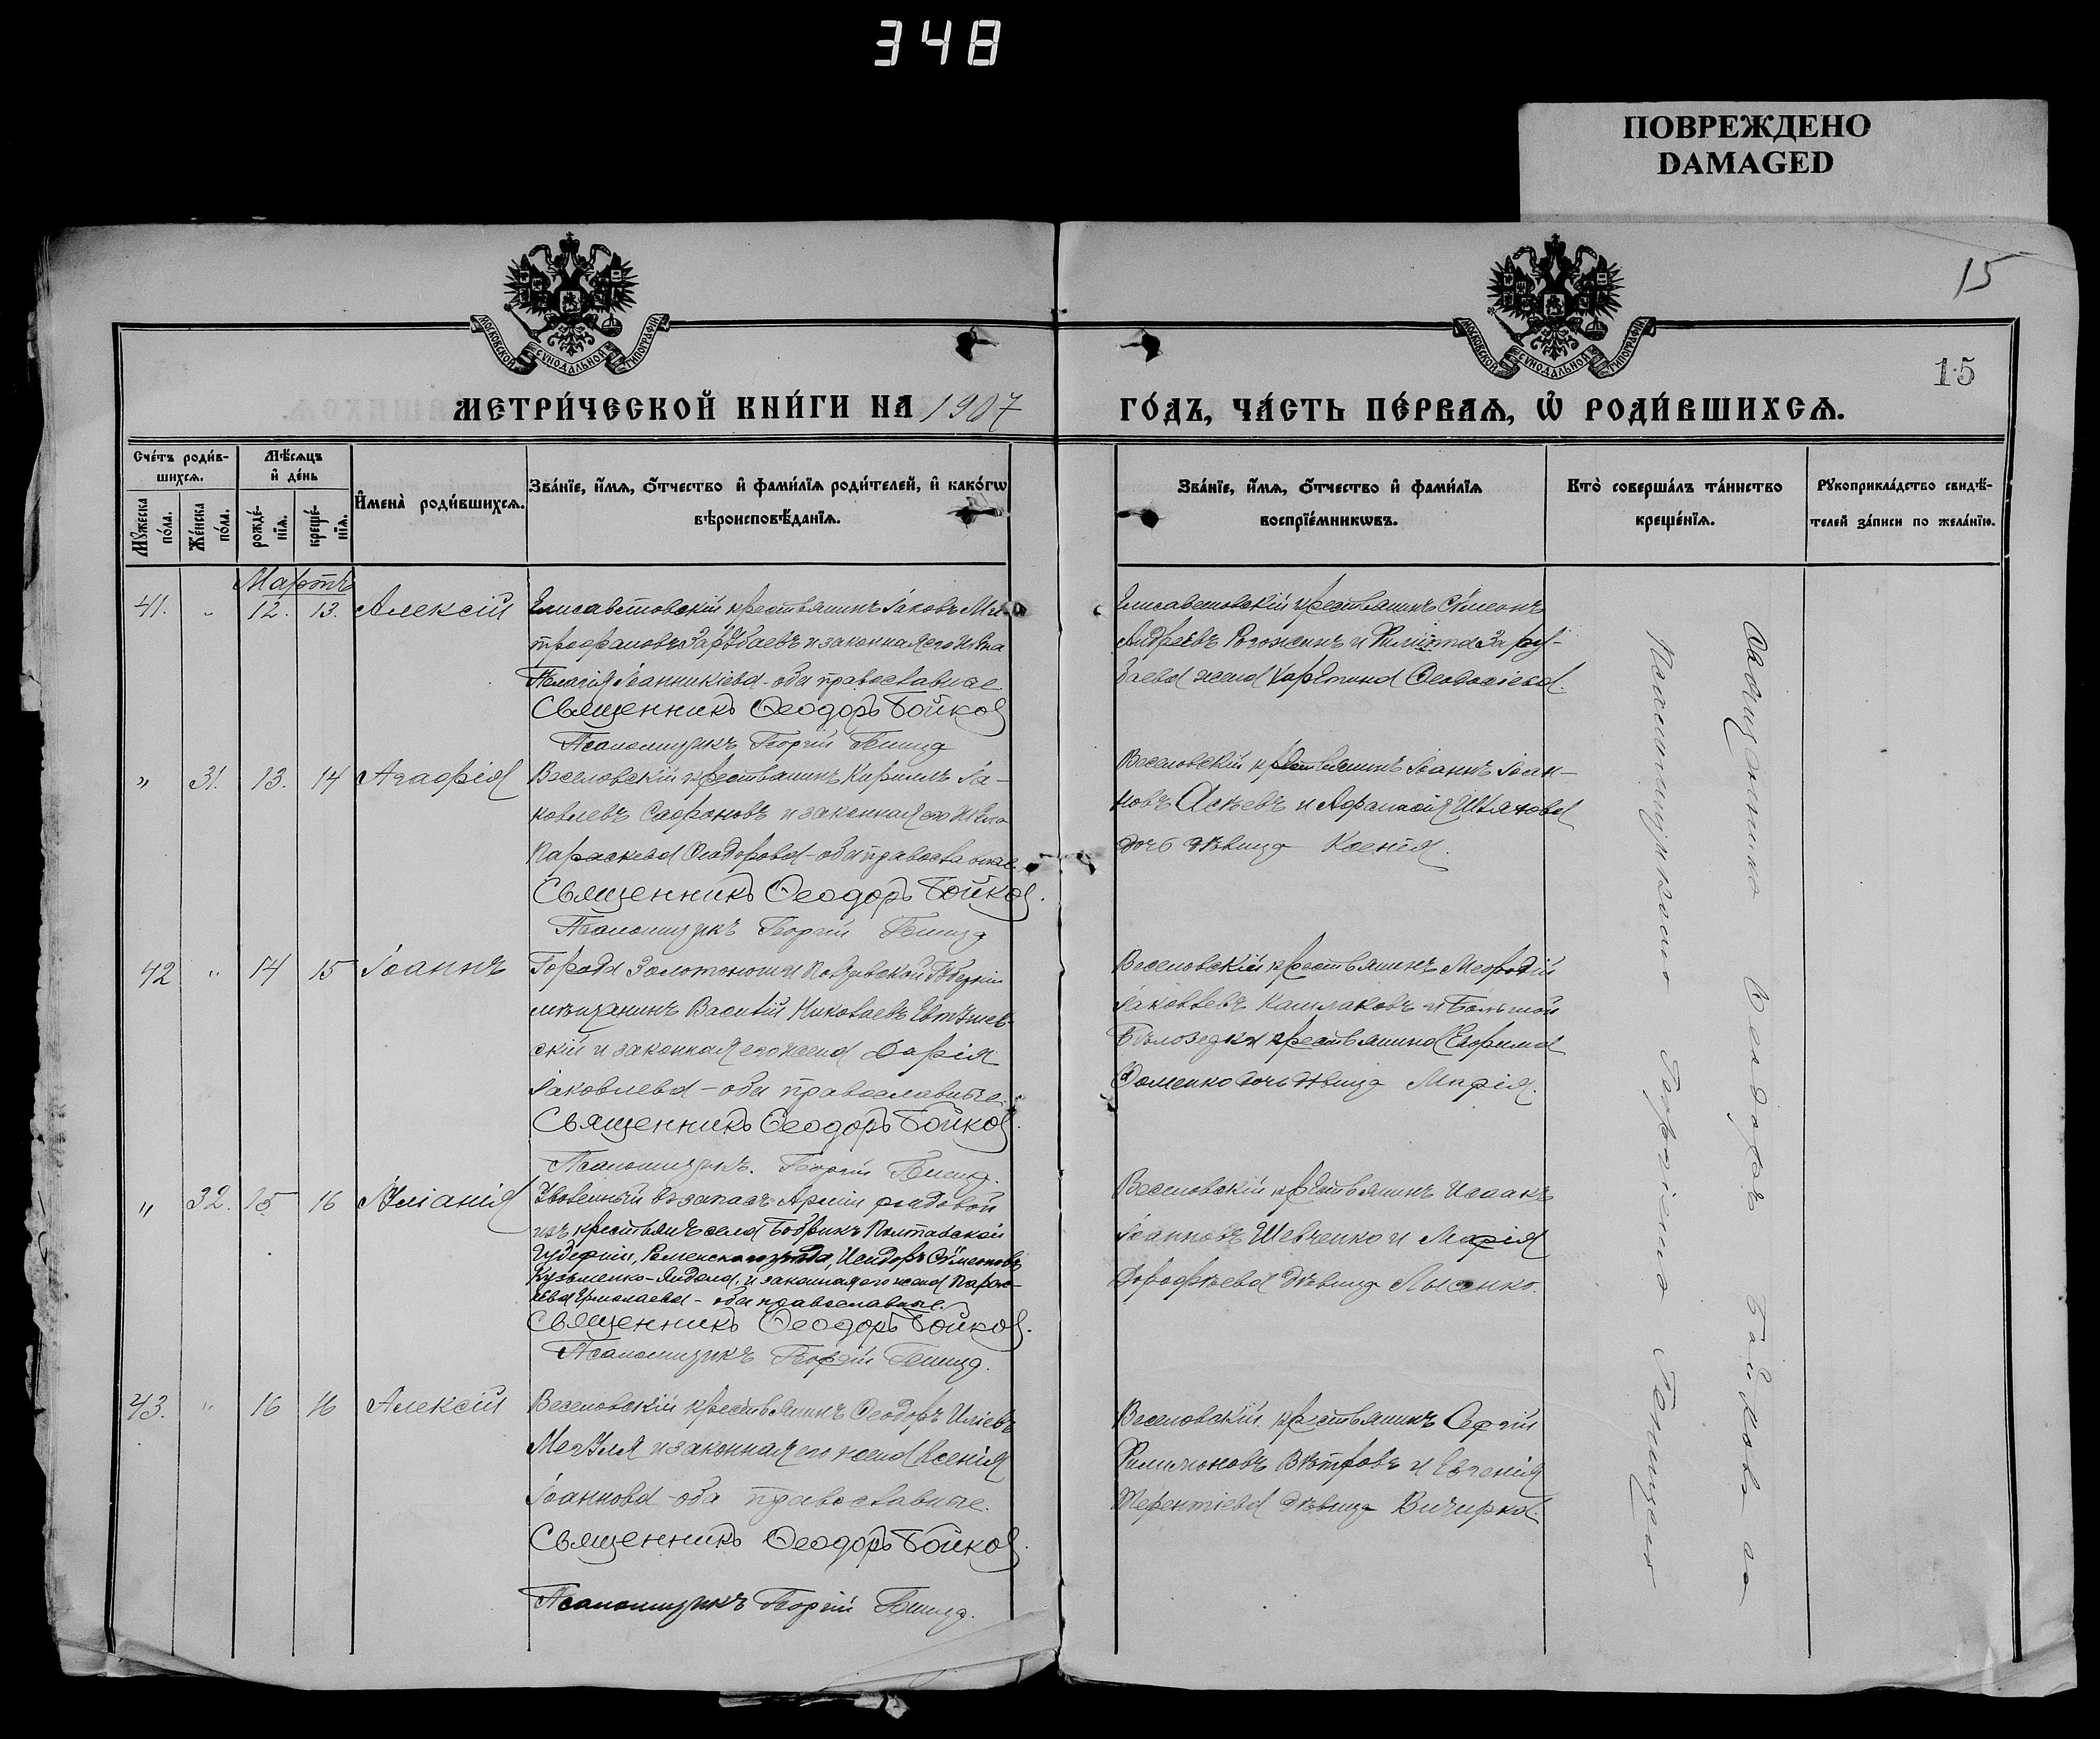 348
ПОВРЕЖДЕНО
DAMAGED
15
15
МОСКОВСКОЙ СѴНОДАЛЬНОЙ ТИПОГРАФІИ
МОСКОВСКОЙ СѴНОДАЛЬНОЙ ТИПОГРАФІИ
МЕТРИ́ЧЕСКОЙ КНИ́ГИ НА 1907
ГО́ДЪ, ЧА́СТЬ ПЕ́РВАѦ, Ѡ҆ РОДИ́ВШИХСѦ.
Сче́тъ роди́в-
шихсѧ.
Мѣ́сѧцъ
и҆ де́нь
Мꙋжеска по́ла.
Же́нска по́ла.
рожде́-
нїѧ.
креще́-
нїѧ.
И҆мена̀ роди́вшихсѧ.
Зва́нїе, и҆́мѧ, ѻ҆́тчество и҆ фами́лїѧ роди́телей, и҆ како́гѡ
вѣроисповѣ́данїѧ.
Зва́нїе, и҆́мѧ, ѻ҆́тчество и҆ фами́лїѧ
воспрїе́мникѡвъ.
Кто̀ соверша́лъ та́инство
креще́нїѧ.
Рꙋкоприкла́дство свидѣ́-
телей за́писи по жела́нїю.
Мартъ
41. " 12. 13. Алексій
Елисаветовскій крестьянинъ Іаковъ Ми-
трофановъ Зарубаевъ и законная его жена
Пелагія Іоанникіева - оба православные
Священникъ Ѳеодоръ Бойковъ
Псаломщикъ Георгій
Елисаветовскій крестьянинъ Сѵмеонъ
Андреевъ Рогожинъ и Филиппа Зару-
баева жена Харитина Ѳеодосіева.
" 31. 13. 14 Агафія
Веселовскій крестьянинъ Кириллъ Іа-
ковлевъ Сафоновъ и законная его жена
Параскева Ѳеодорова - оба православные
Священникъ Ѳеодоръ Бойковъ.
Псаломщикъ Георгій
Веселовскій крестьянинъ Іоаннъ Іоан-
новъ и
дочь дѣвица Ксенія.
42 " 14 15 Іоаннъ
Города Золотоноши Полтавской Губерніи
мѣщанинъ Василій Николаевъ
скій и законная его жена Дарія
Іаковлева - оба православные.
Священникъ Ѳеодоръ Бойковъ.
Псаломщикъ. Георгій
Веселовскій крестьянинъ Меѳодій
Іаковлевъ Кашлаковъ и Большой
Бѣлозерки крестьянина Ефима
Фоменко дочь дѣвица Марія.
" 32. 15 16 Іуліанія
Уволенный въ запасъ Арміи рядовой
изъ крестьянъ села Бобрикъ Полтавской
Губерніи, Роменскаго уѣзда, Исидоръ Сѵмеоновъ
Кузьменко- и законная его жена Параск-
ева Ермолаева - оба православные.
Священникъ Ѳеодоръ Бойковъ.
Псаломщикъ Георгій
Веселовскій крестьянинъ Исаакъ
Іоанновъ Шевченко и Марія
Дороѳеева дѣвица Лысенко.
43. " 16 16 Алексій
Веселовскій крестьянинъ Ѳеодоръ Иліевъ
и законная его жена Ксенія
Іоаннова - оба православные.
Священникъ Ѳеодоръ Бойковъ.
Псаломщикъ Георгій
Веселовскій крестьянинъ Сергій
Филимоновъ Вѣтровъ и Евгенія
Терентіева дѣвица
Священникъ Ѳеодоръ Бойковъ съ
Псаломщикомъ Георгіемъ